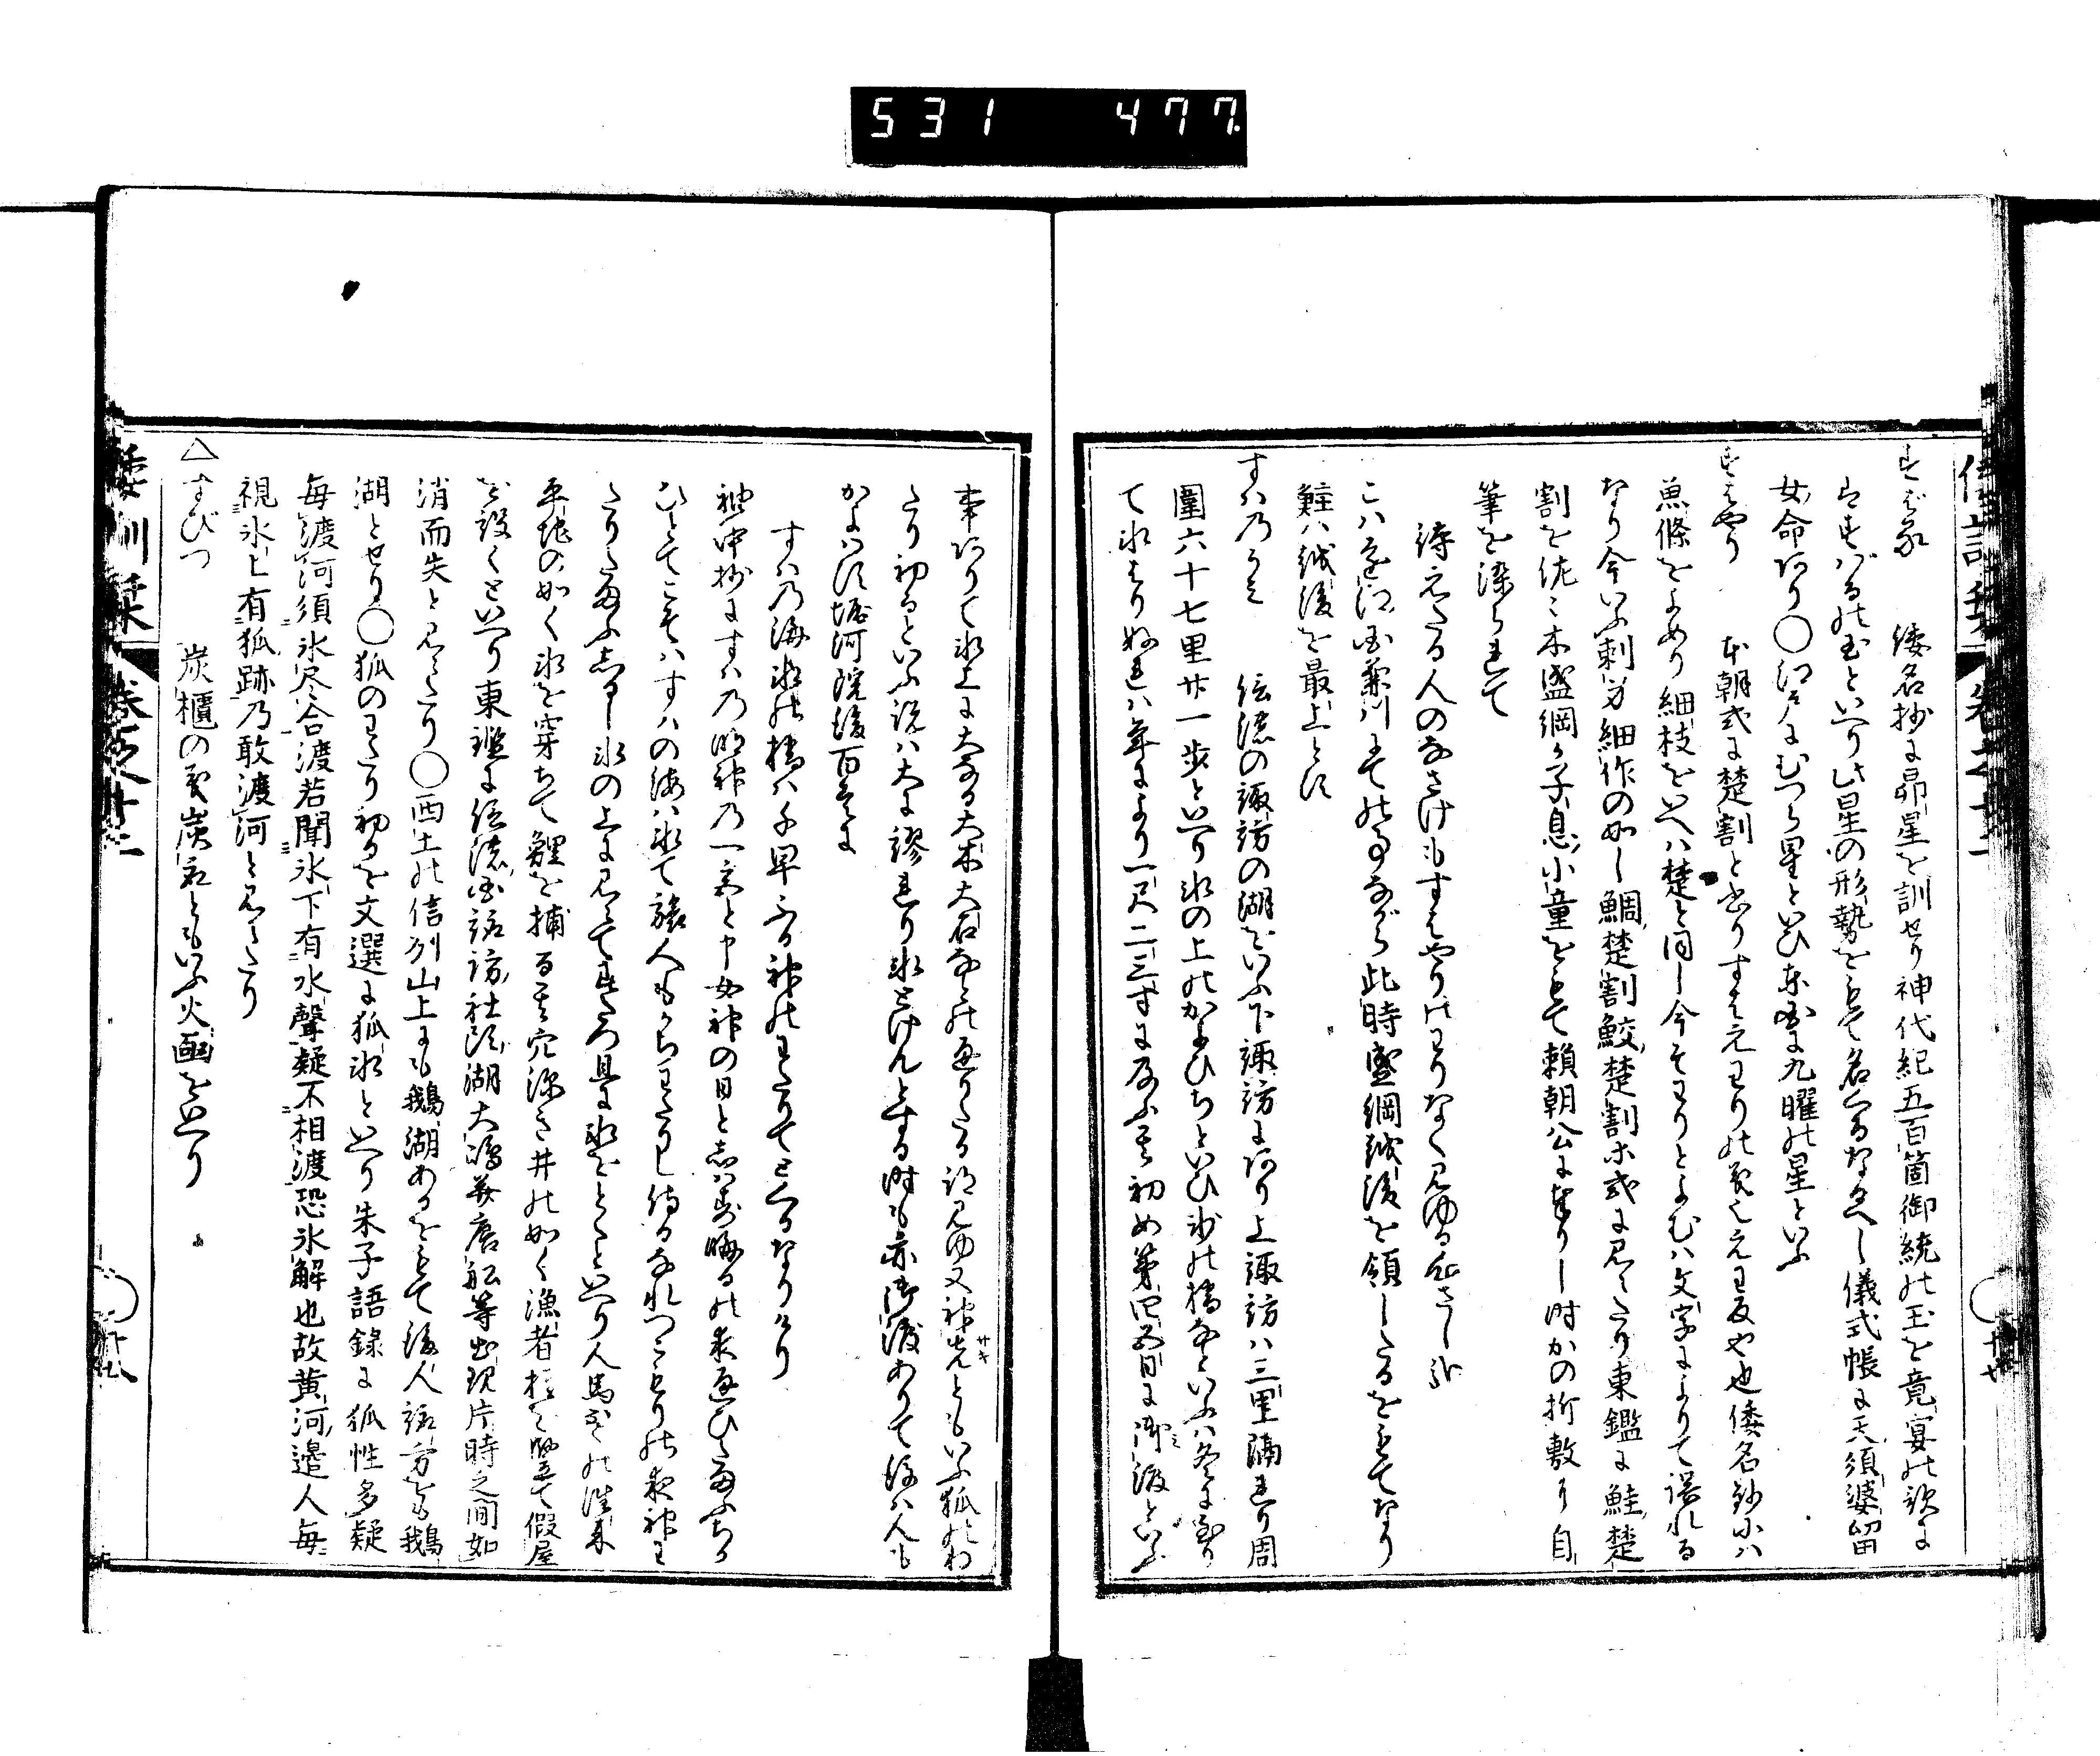 531 477
すばる 倭名抄に昴星を訓せり神代紀五百箇御統の玉を竟宴の歌に
はすばるの玉といへり此星の形勢をもて名くるなるへし儀式帳に天須婆留
女命あり〇江戸にむつら星といひ東国に九曜の星といふ
すはやり 本朝式に楚割と書りすはえわりの義也えわ反や也倭名鈔には
魚條をよめり細枝をすはえといへは楚と同し今そわりとよむは文字によりて誤れる
なり今いふ刺身細作の如し鯛楚割鮫楚割ホ式に見えたり東鑑に鮭楚
割を佐々木盛綱か子息小童をもて頼朝公に奉りし時かの折敷り自
筆を染られて
待えたる人のなさけもすはやりのわりなく見ゆる心さし哉
こは遠江国菊川にての事ながら此時盛綱越後を領したるをもてなり
鮭は越後を最上とす
すはのうみ 信濃の諏訪の湖をいふ下諏訪にあり上諏訪は三里隔れり周
圍六十七里廿一歩といへり氷の上のかよひぢといひ氷の橋なといふは冬に至り
て氷はりぬれは年により一尺二三寸に及ふ其初め第四五日に御渡といふ
事ありて氷上に大なる大木大石なとの通りたる跡見ゆ又神先ともいふ狐のわ
たり初るといふ説は大に謬れり氷とけんとする時も亦御渡ありて後は人も
かよはす堀河院後百首に
すはの海氷の橋は千早ふる神のわたりてとくるなりけり
袖中抄にすはの明神の一宮と申女神の日と
ひとてこそはすはの海は氷て旅人もかちわたりし侍るなれつこもりの夜神わ
たりたまふしるし氷の上に見えて其ころ具に氷をとくといへり人馬の往来
平地の如く氷を穿ちて鯉を捕る其穴深き井の如く漁者 假屋
を設くといへり東鑑に信濃国諏訪社頭湖大嶋并唐舩等出現片時之間如
消而失と見えたり〇西土の信州山上にも鵝湖あるをもて後人諏訪をも鵝
湖とせり〇狐のわたり初るを文選に狐氷といへり朱子語録に狐性多疑
毎渡河須氷尽合渡若聞氷下有水聲疑不相渡恐氷解也故黄河邉人毎
視氷上有狐跡乃敢渡河と見えたり
△すびつ 炭櫃の義炭取ともいふ火凾をいへり
倭訓栞 巻之廿二